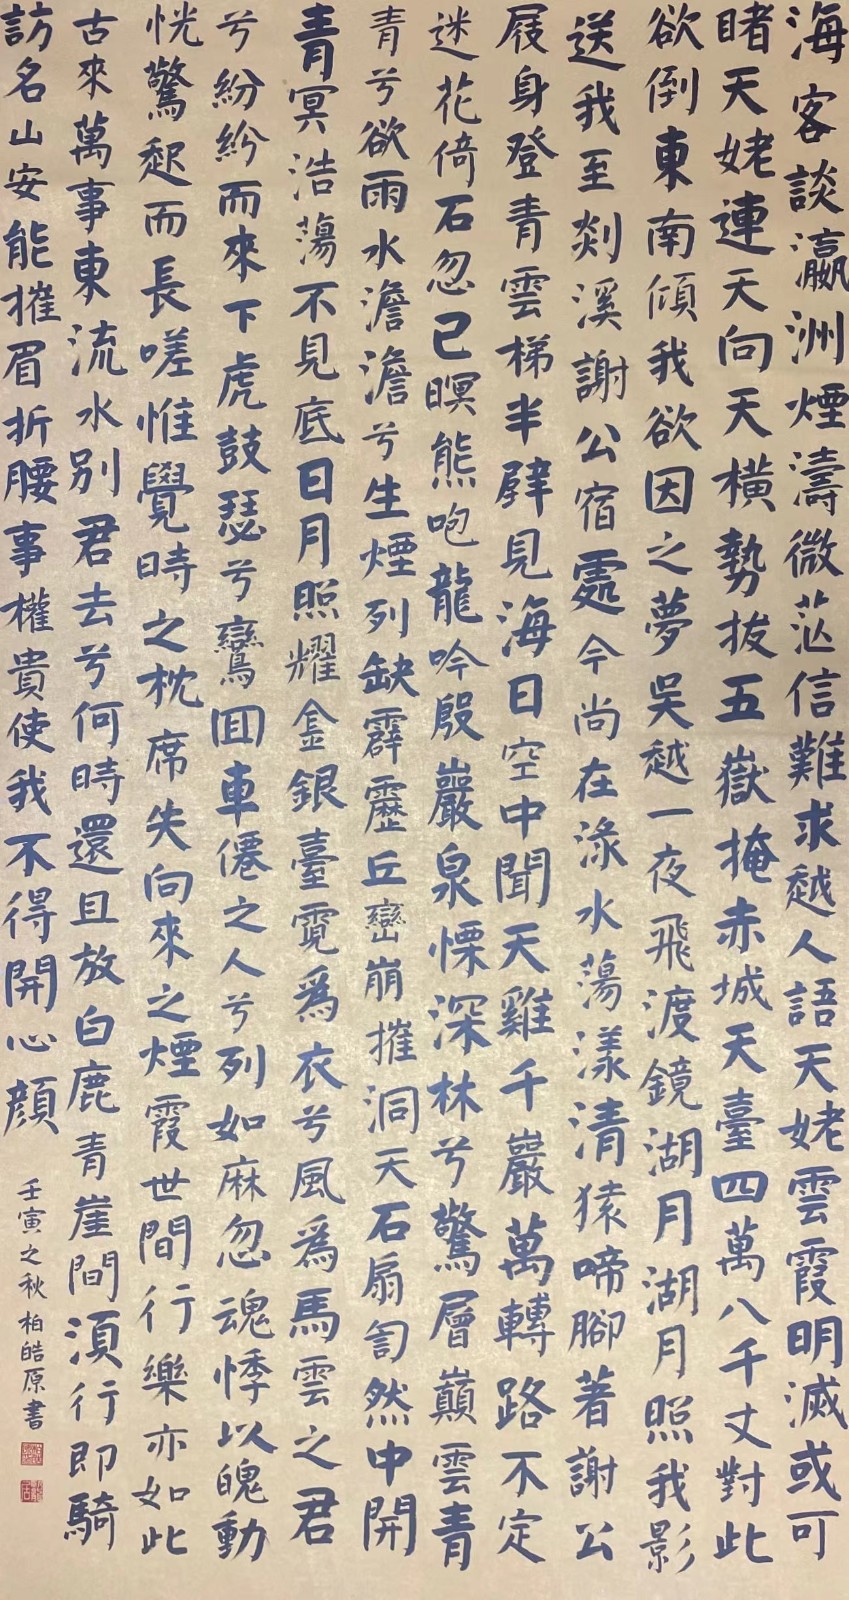 海客談瀛洲煙濤微茫信難求越人語天姥雲霞明滅或可
睹天姥連天向天橫勢拔五嶽掩赤城天臺四萬八千丈對此
欲倒東南傾我欲因之夢吳越一夜飛渡鏡湖月湖月照我影
送我至剡溪謝公宿處今尚在淥水蕩漾清猿啼腳著謝公
屐身登青雲梯半壁見海日空中聞天雞千巖萬轉路不定
迷花倚石忽已暝熊咆龍吟殷巖泉慄深林兮驚層巔雲青
青兮欲雨水澹澹兮生煙列缺霹靂丘巒崩摧洞天石扇訇然中開
青冥浩蕩不見底日月照耀金銀臺霓為衣兮風為馬雲之君
兮紛紛而來下虎鼓瑟兮鸞回車僊之人兮列如麻忽魂悸以魄動
恍驚起而長嗟惟覺時之枕席失向來之煙霞世間行樂亦如此
古來萬事東流水別君去兮何時還且放白鹿青崖間須行即騎
訪名山安能摧眉折腰事權貴使我不得開心顏
壬寅之秋柏皓原書